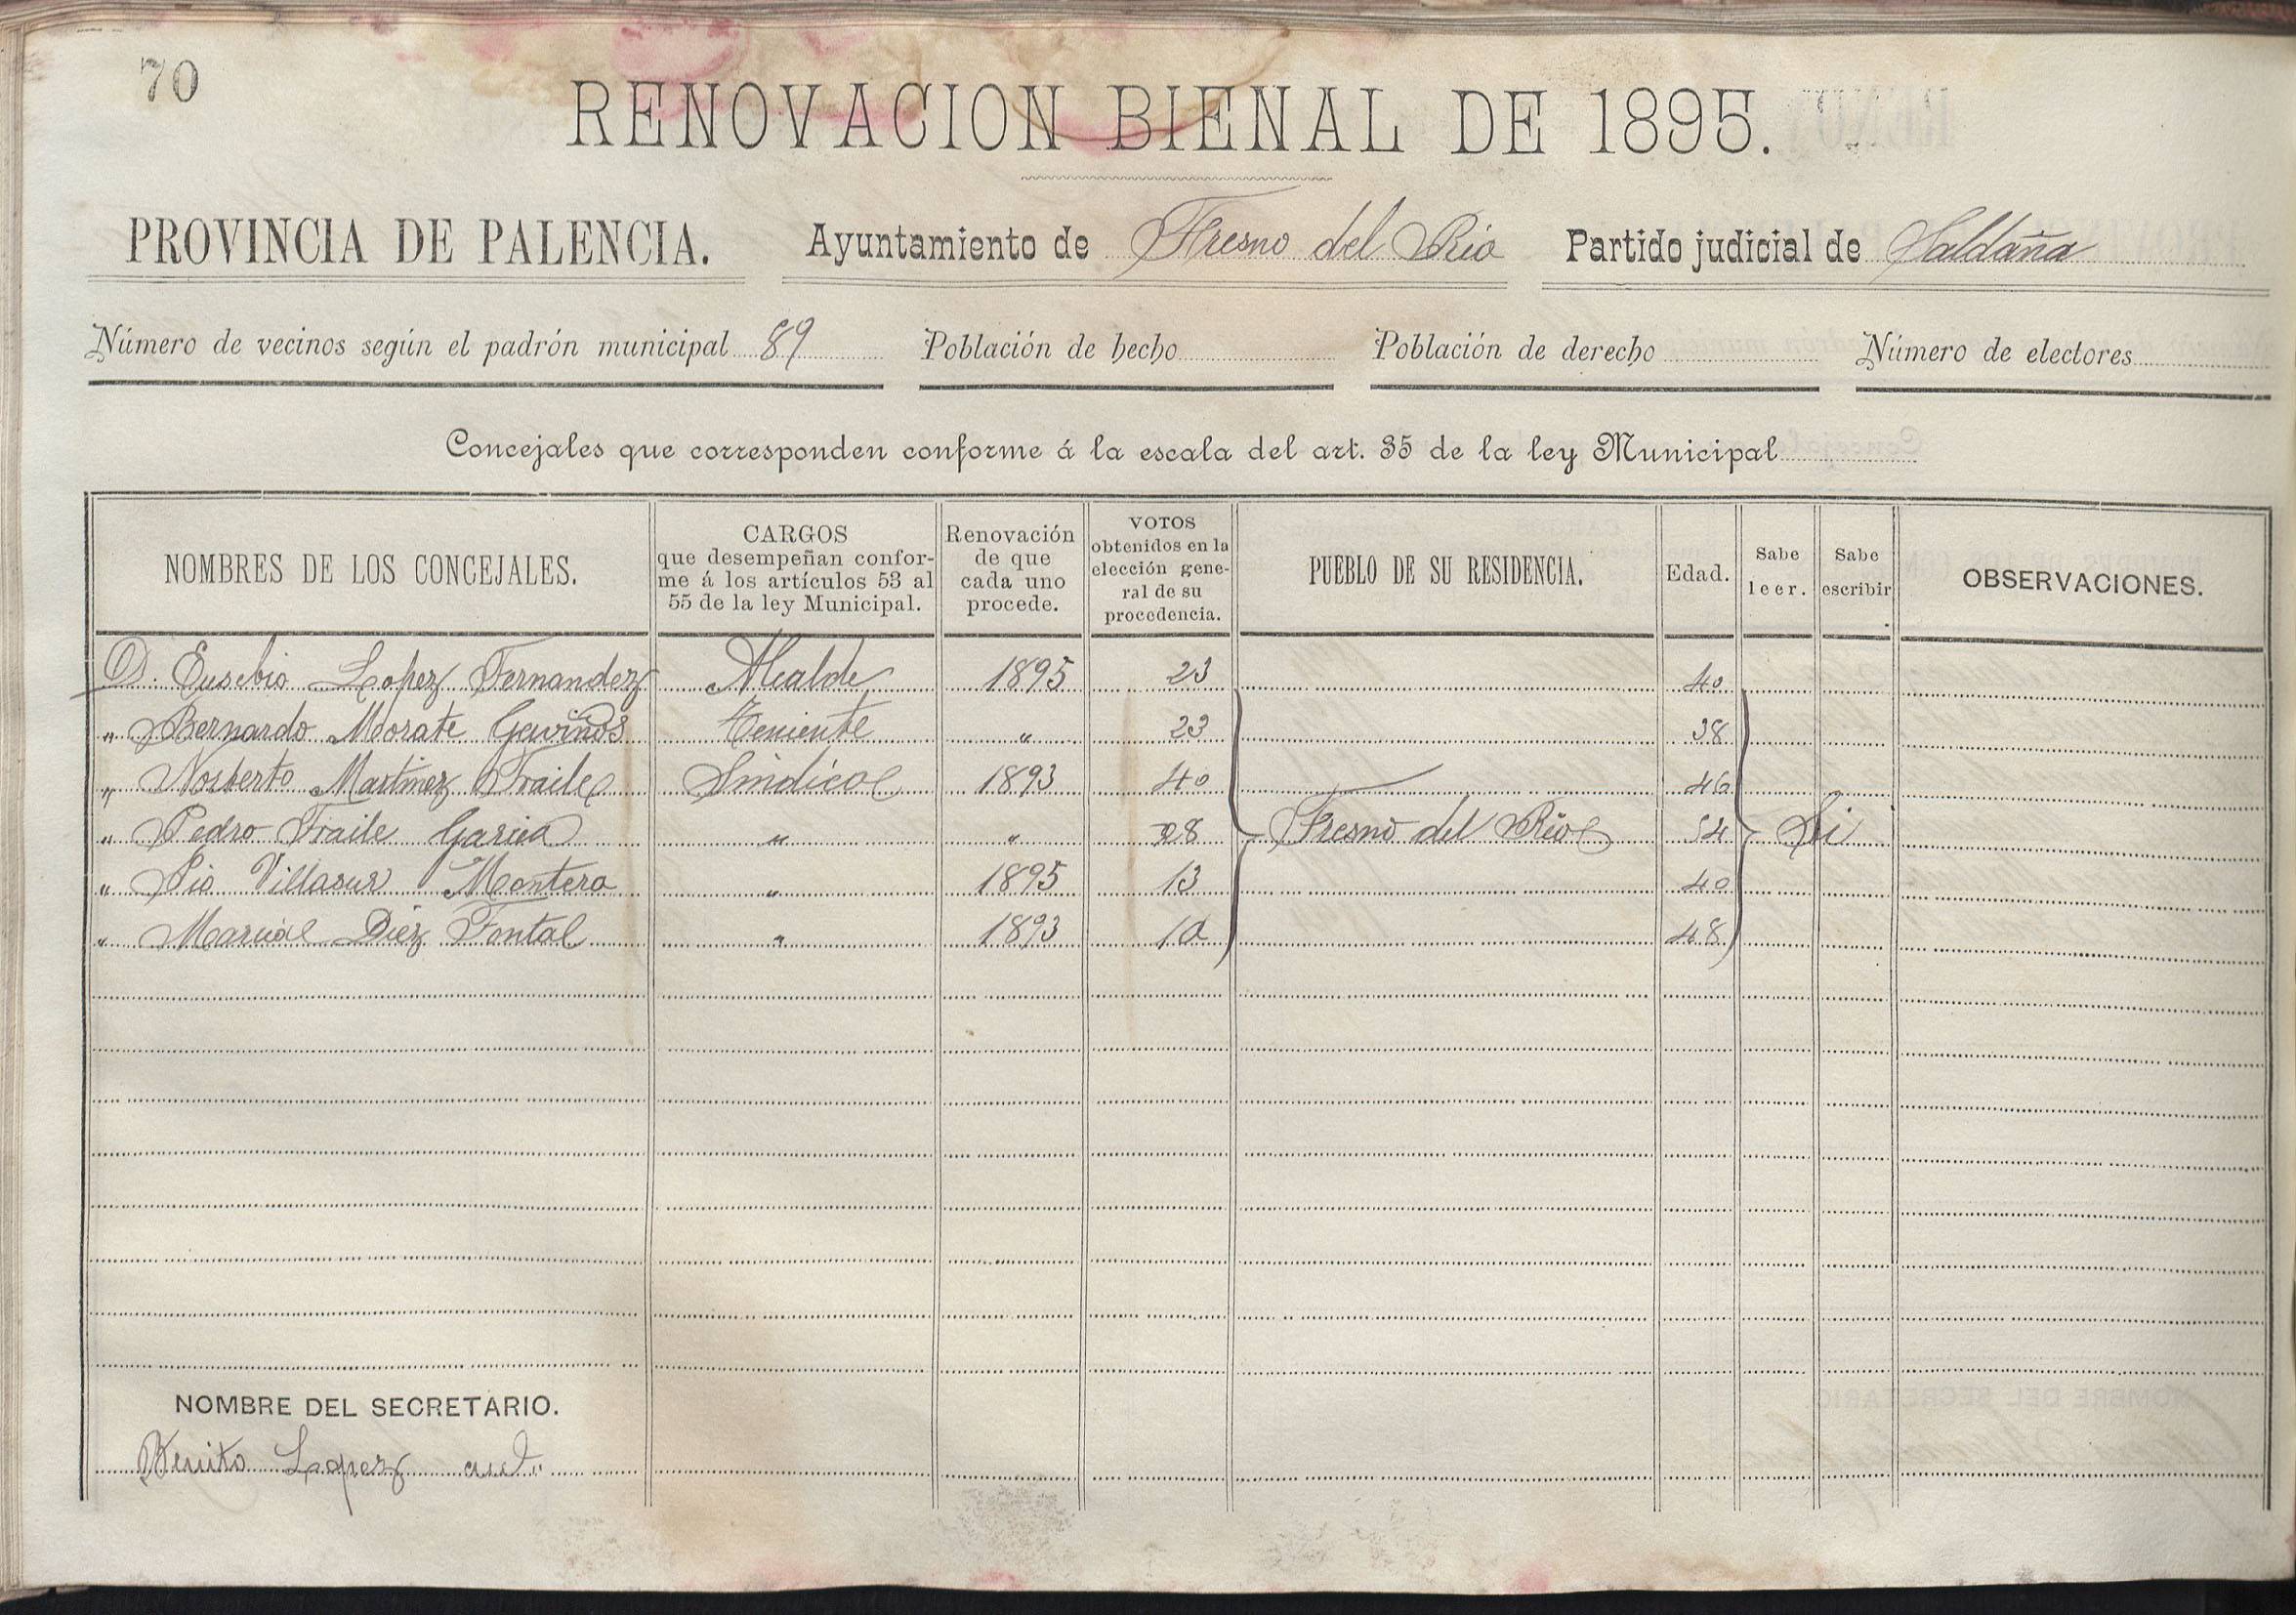 70
RENOVACION BIENAL DE 1895.
PROVINCIA DE PALENCIA. Ayuntamiento de Fresno del Rio Partido judicial de Saldaña
Número de vecinos según el padrón municipal 89 Población de hecho Población de derecho Número de electores
Concejales que corresponden conforme á la escala del art. 35 de la ley Municipal
NOMBRES DE LOS CONCEJALES.
CARGOS
que desempeñan confor-
me á los artículos 53 al
55 de la ley Municipal.
Renovación
de que
cada uno
procede.
VOTOS
obtenidos en la
elección gene-
ral de su
procedencia.
PUEBLO DE SU RESIDENCIA.
Edad.
Sabe
leer.
Sabe
escribir
OBSERVACIONES.
D. Eusebio Lopez Fernandez Alcalde 1895 23 40
" Bernardo Morate Teniente " 23 38
" Norberto Martinez Fraile Sindico 1893 40 46
" Pedro Fraile Garcia " " 28 Fresno del Rio 54 Si
" Pio Villasur Montero " 1895 13 40
" Marcial Diez Fontal " 1893 10 48
NOMBRE DEL SECRETARIO.
Benito Lopez